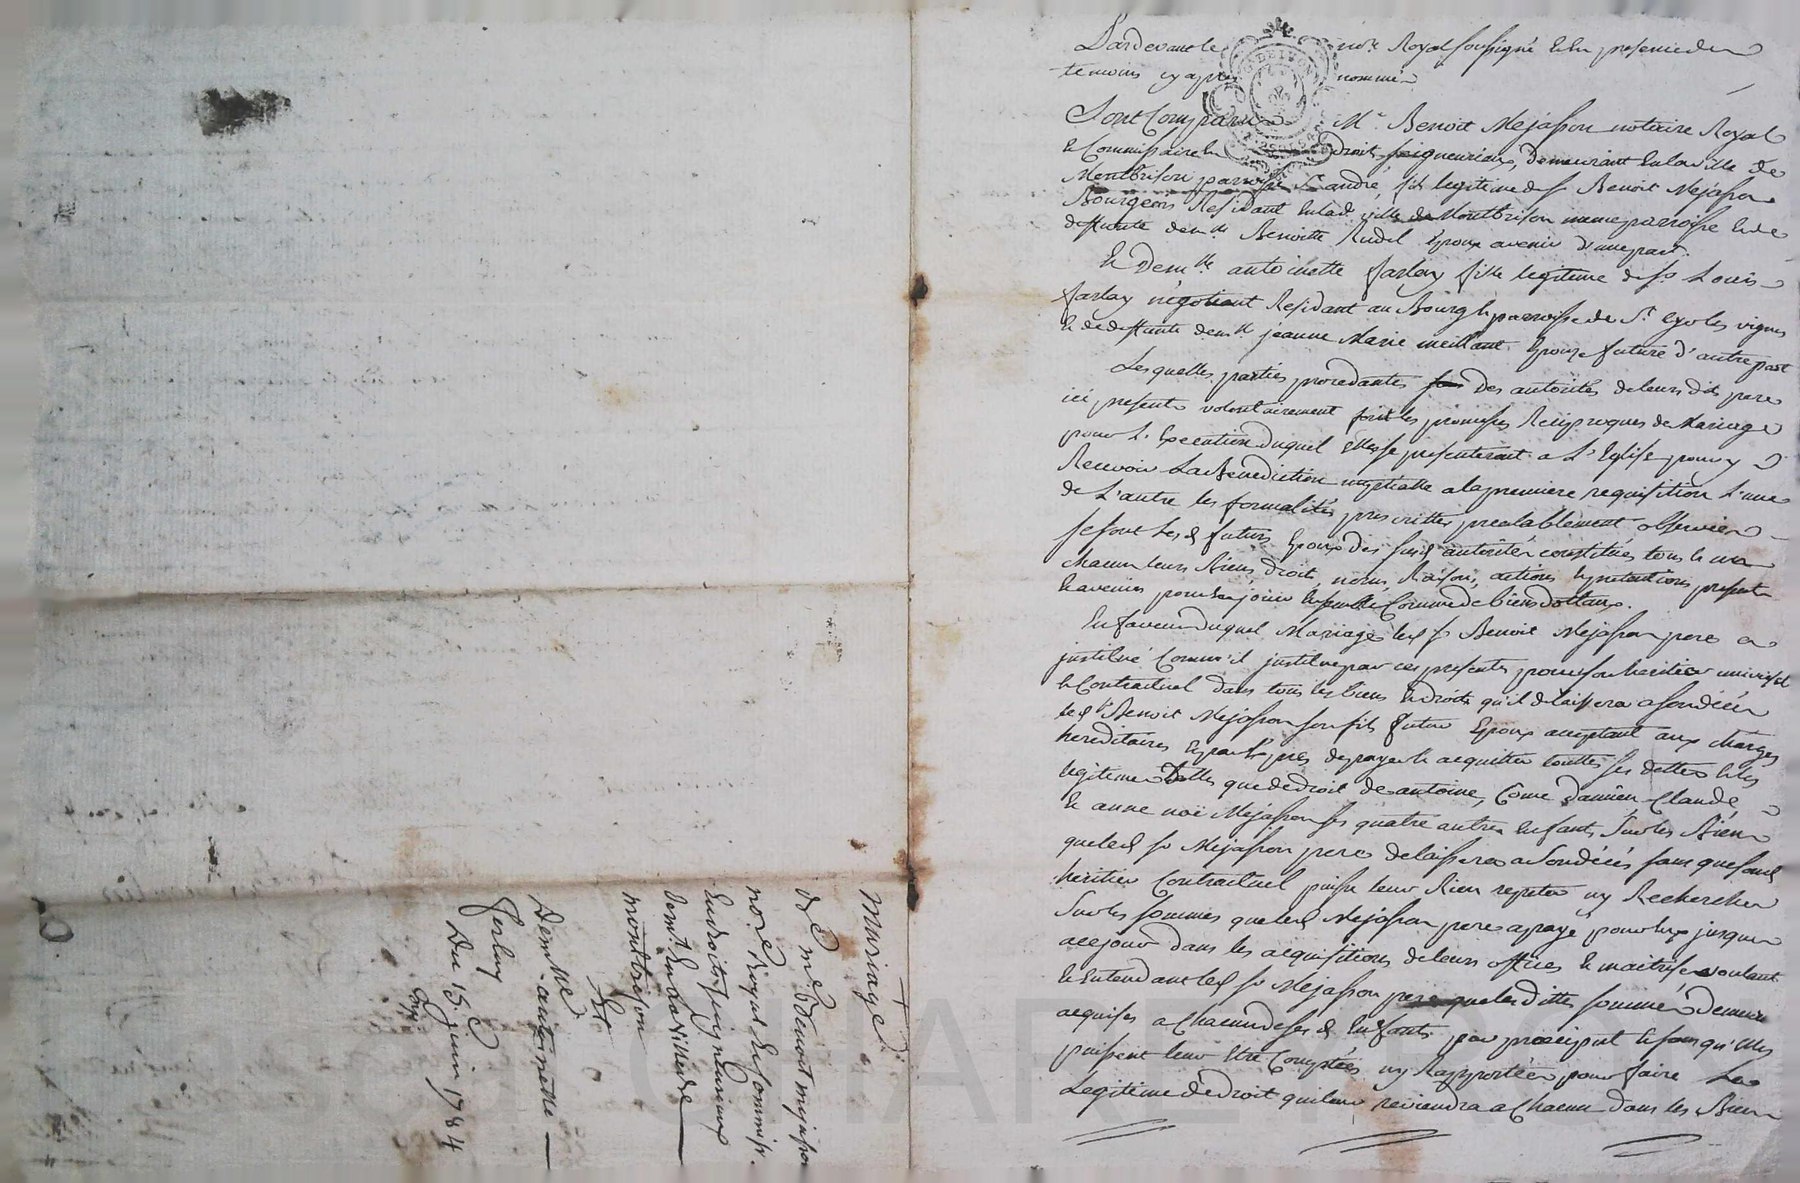 Pardevant le notre Royal soussigné et en presence des
temoins cy apres nommés
Sont Comparus Me Benoit Mejasson notaire Royal
et Commissaire en droits seigneuriaux, demeurant en la ville de
Montbrison parroisse St andré, fils legitime de sr Benoit Mejasson
Bourgeois Residant en lad. ville de Montbrison meme parroisse et de
deffunte demlle Benoitte Rudel Epoux avenir d'une part.
Et Demlle antoinette farlay fille legitime de sr Louis
farlay négotiant Residant au Bourg et parroisse de St Cyr les vignes
et de deffunte demlle jeanne Marie meillant Epouse future d'autre part
Lesquelles parties procedantes des autorités de leurs dits peres
ici presents volontairement font les promesses Reciproques de Mariage
pour L'Execution duquel elles se presenteront a L'Eglise pour y
Recevoir La Benediction nuptialle a la premiere requisition L'une
de L'autre les formalités prescrittes prealablement observées
se sont lesd futurs Epoux des susd autorités constitués tous et un
chacun leurs Biens, droits, noms, Raisons, actions et pretentions presents
et avenirs pour en jouir ensemble Comme de biens dottaux.
En faveur duquel Mariage led sr Benoit Mejasson pere a
justitué Comm'il justitue par ces presentes pour son heritier universel
et Contractuel dans tous les biens et droits qu'il delaissera a son décés
led sr Benoit Mejasson son fils futur Epoux acceptant aux charges
hereditaires de payer et acquitter touttes ses dettes et les
legitimes telles que de droit de antoine, Côme Damien, Claude,
et anne noë Mejasson ses quatre autres Enfants, sur les Biens
que led sr Mejasson pere delaissera a son décés sans que son d
heritier Contractuel puisse leur Rien repeter ny Rechercher
sur les sommes que led Mejasson pere a payé pour eux jusqua
ce jour dans les acquisitions de leurs offices et maitrises voulant
et Entendant led sr Mejasson pere que les dittes sommes demeurent
acquises a Chacun de ses d Enfants par preciput et sans qu'elles
puissent leur etre Comptées ny Rapportées pour faire La
Legitime de droit qui leur reviendra a Chacun dans les Biens
Mariage
de Me Benoit mejasson
nore Royal et Commissr.
en droits seigneuriaux
demt. en la Ville de
montbrison
Et
Demlle antoinette
farlay
Du 15e juin 1784